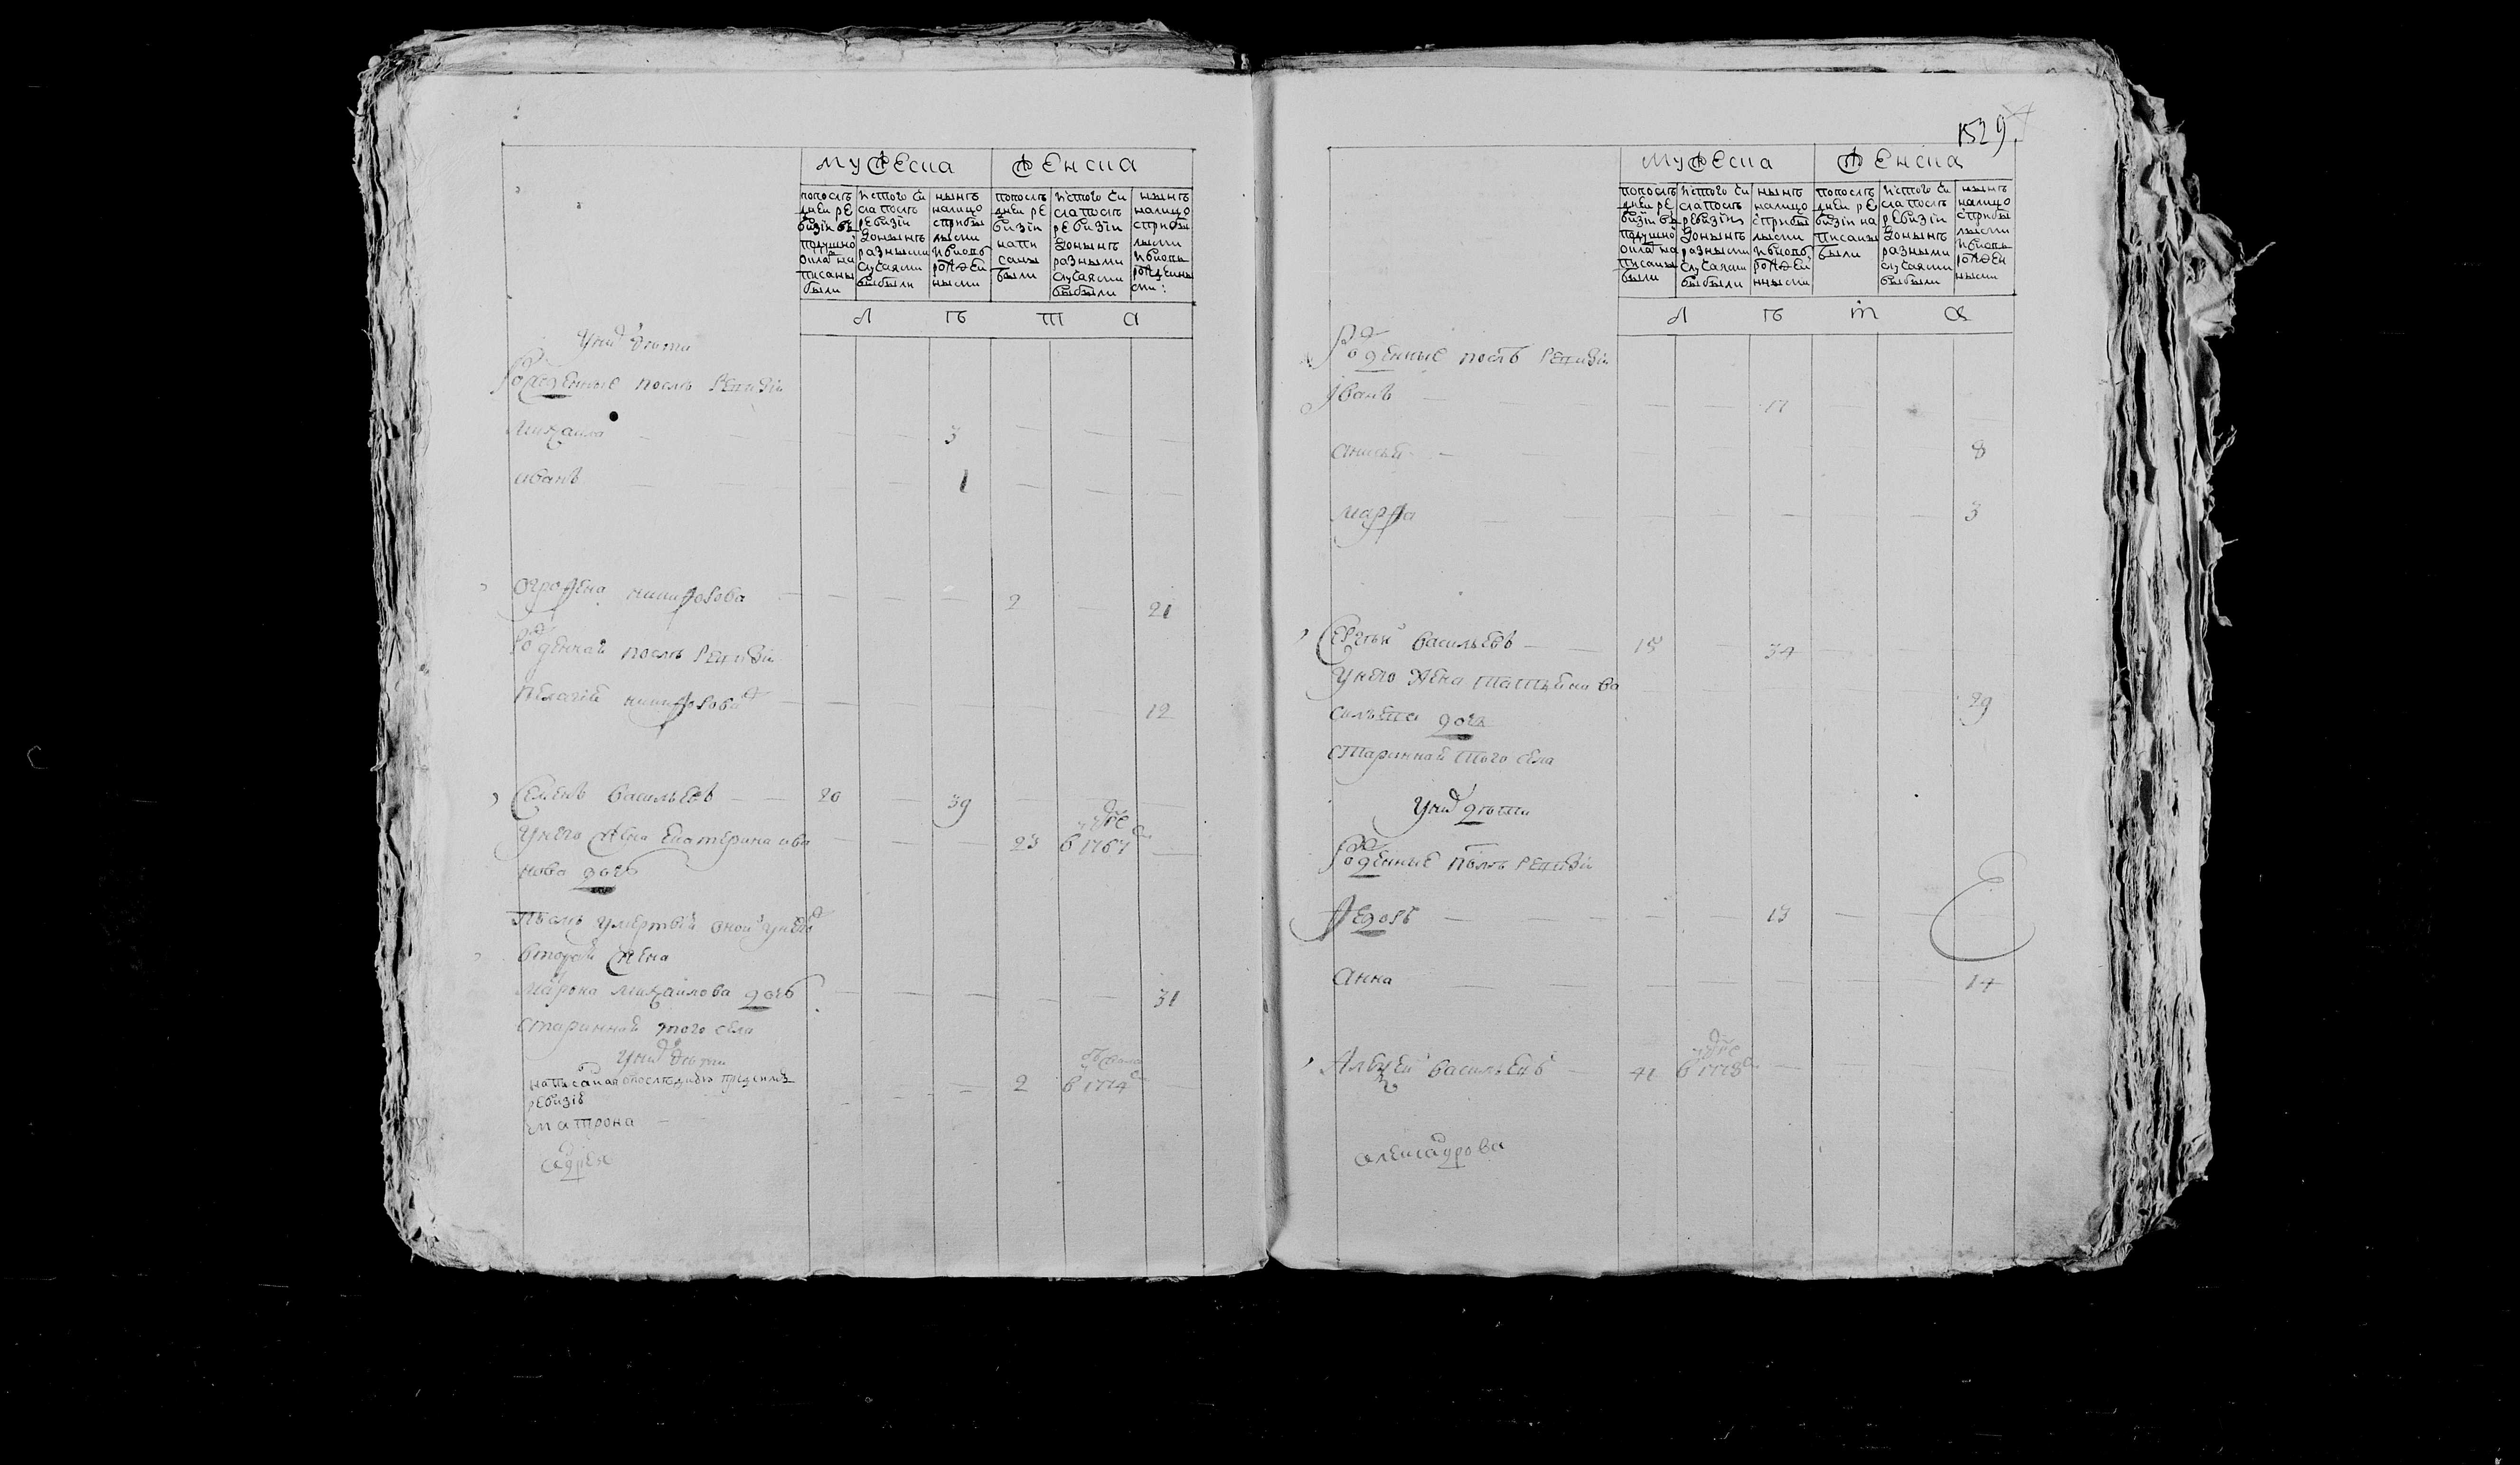 мужеска
женска
попослѣ
днеи ре
визіи въ
подушно
окла на
писаны
были
исого чи
сла послѣ
ревизіи
донынѣ
разными
случаями
выбыли
нынѣ
налицо
сприбы
лыми
ивновь
рожден
ными
попослѣ
днеи ре
визіи
напи
саны
были
истого чи
сла послѣ
ревизіи
донынѣ
разными
случаями
выбыли
нынѣ
налицо
сприбы
лыми
ивновь
рожденны
ми:
л ѣ т а
уних дѣти
рожденные послѣ ревизіи
михаила 3
иванъ 1
огрофена никифорова 2 21
рожденная послѣ ревизіи
пелагѣя никифорова 12
Семенъ васильевъ 20 39
унего жена екатерина ива 23 в 1767м
нова дочь
послѣ умертвіи оной унего
вторая жена
мαрона михаилова дочь 31
стариннай того села
уних дѣти
написаная впоследнею пред сим
ревизіе 2 в 1774м
матрона
андрея
1529
мужеска
женска
попослѣ
днеи ре
визіи въ
подушно
окла на
писаны
были
истого чи
сла послѣ
ревизіи
донынѣ
разными
случаями
выбыли
нынѣ
налицо
сприбы
лыми
ивновь
рожден
нными
попослѣ
днеи ре
визіи на
писаны
были
истого чи
сла послѣ
ревизіи
донынѣ
разными
случаями
выбыли
нынѣ
налицо
сприбы
лыми
ивновь
рожден
ными
л ѣ т а
рожденные послѣ ревизіи
иванъ 17
анисья 8
марфа 3
Сергѣй васильевъ 15 34
унего жена татьяна ва
сильева дочь 29
стариннай того села
уних дѣти
рожденные послѣ ревизіи
федоръ 13
анна 14
Алексѣй васильевъ 41 в 1773м
александрова